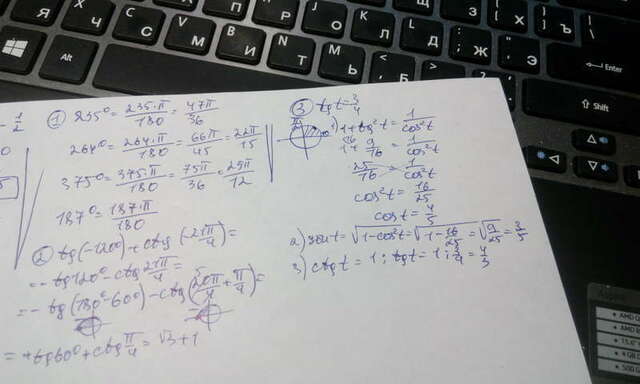 Я
Ч
С
М
И
Т
Ь
Б
Ю
Л
Д
Ж
Э
Х
Ъ
Ф
В
N
M
Alt
Enter
Shift
1/2
① 235° = 235·π/180 = 47π/36
264° = 264·π/180 = 66π/45 = 22π/15
375° = 375·π/180 = 75π/36 = 25π/12
187° = 187·π/180
② tg(-120°) + ctg(-21π/4) =
= -tg120° - ctg 21π/4 =
= -tg(180°-60°) - ctg(20π/4 + π/4) =
= +tg60° + ctg π/4 = √3 + 1
③ tg t = 3/4
1) 1 + tg²t = 1/cos²t
1 + 9/16 = 1/cos²t
25/16 = 1/cos²t
cos²t = 16/25
cos t = 4/5
2) sin t = √1-cos²t = √1-16/25 = √9/25 = 3/5
3) ctg t = 1 : tg t = 1 : 3/4 = 4/3
AMD
AMD
15.6"
4 GB
500